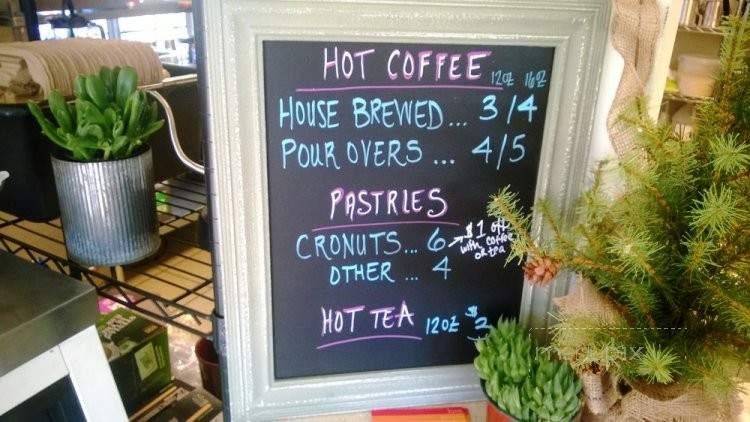 HOT COFFEE 12OZ 16OZ
HOUSE BREWED... 3/4
POUR OVERS ... 4/5
PASTRIES
CRONUTS... 6 $1 off
with coffee
or tea
OTHER ... 4
HOT TEA 12OZ $2